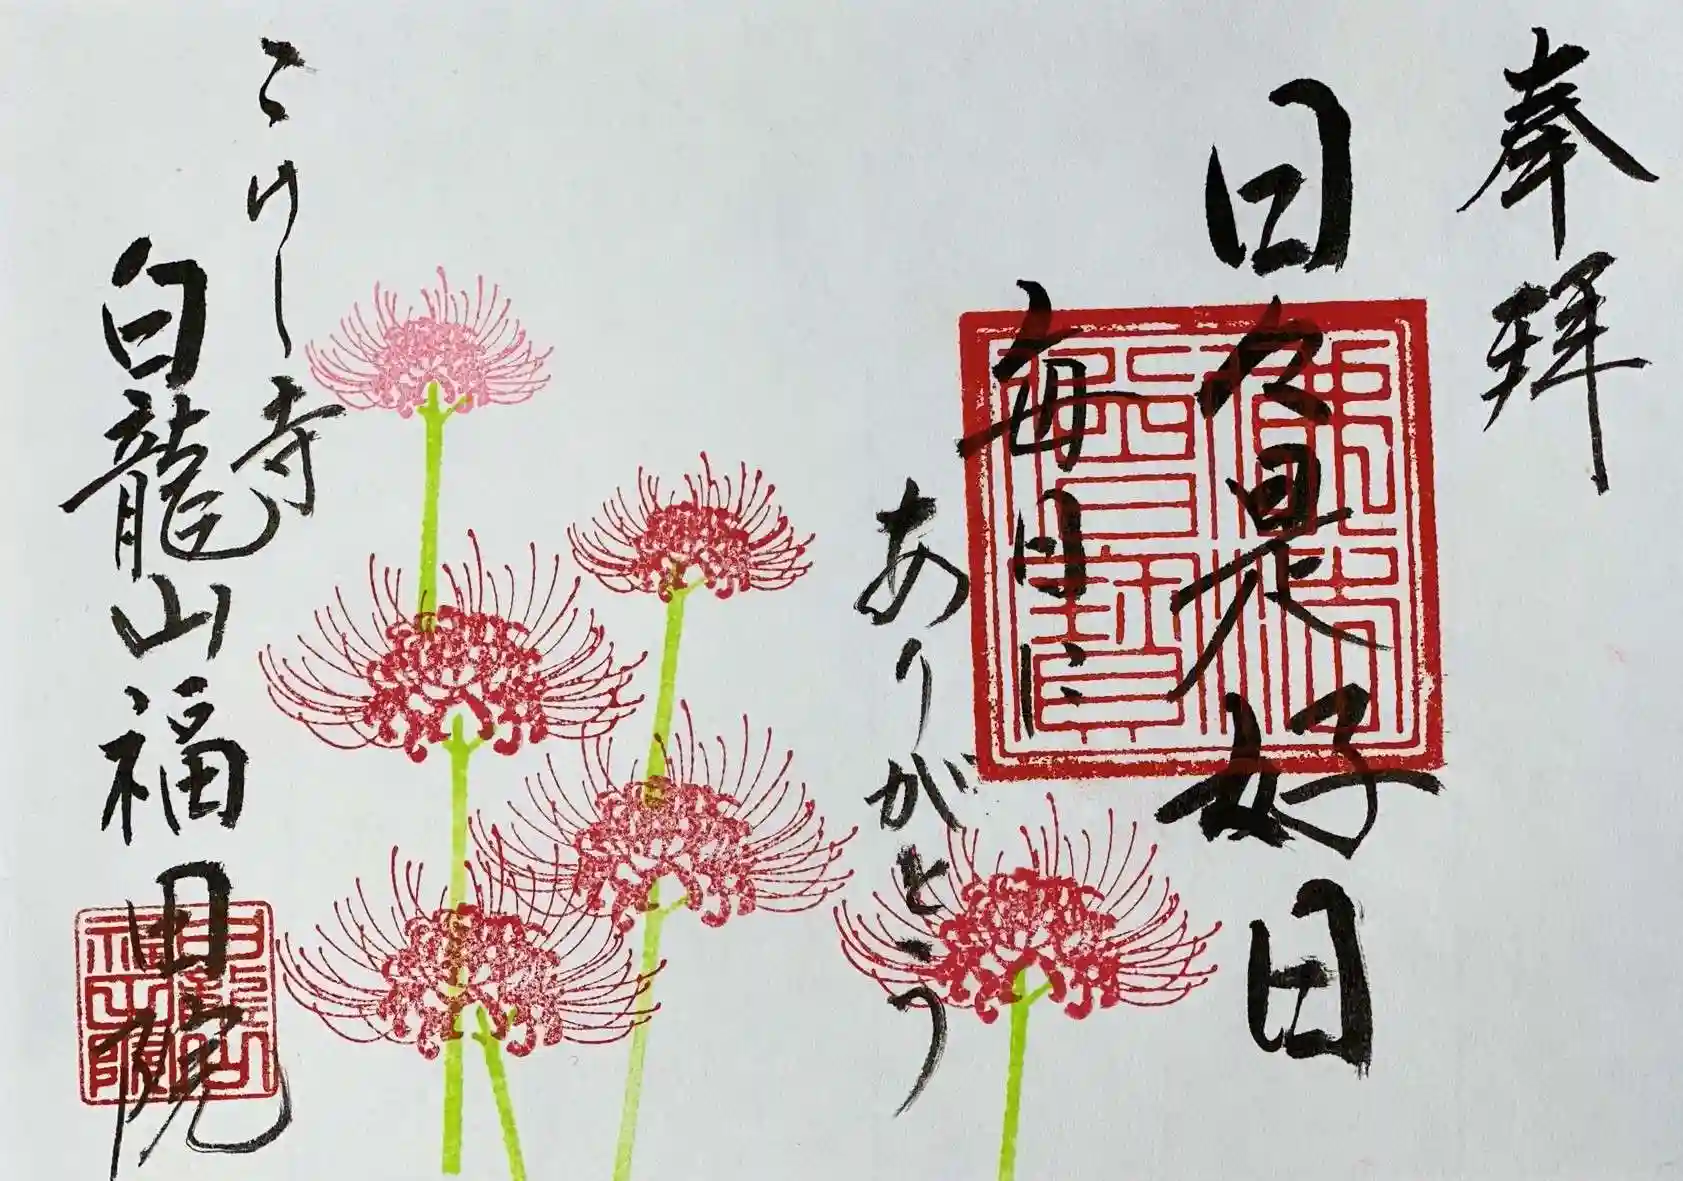 奉拝
日々是好日
毎日に
ありがとう
こけし寺
白龍山福田院